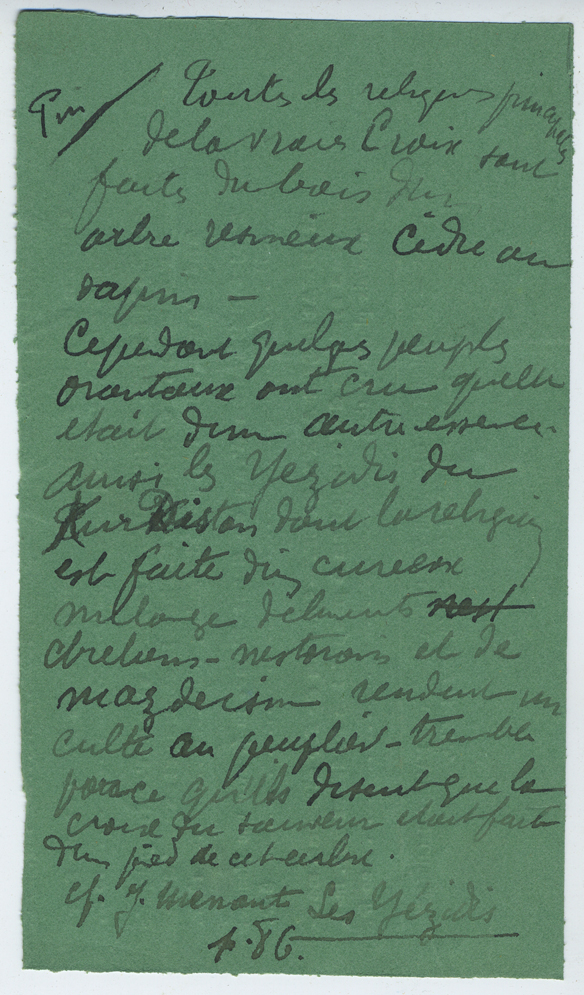 Pin / Toutes les reliques principales
de la vraie Croix sont
faites du bois d'un
arbre resineux Cèdre ou
sapin —
Cependant quelques peuples
orientaux ont cru quelle
etait d'une autre essence.
ainsi les Yezidis du
Kurdistan dont la religion
est faite d'un curieux
melange d'elements nest
chretiens - nestoriens et de
mazdeisme rendent un
culte au peuplier - tremble
parce qu'ils disent que la
croix du sauveur etait faite
d'un pied de cet arbre.
cf. J. Menant Les Yézidis
p. 86.